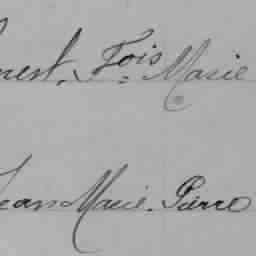 nest, Fois Marie
Jean Marie Pierre